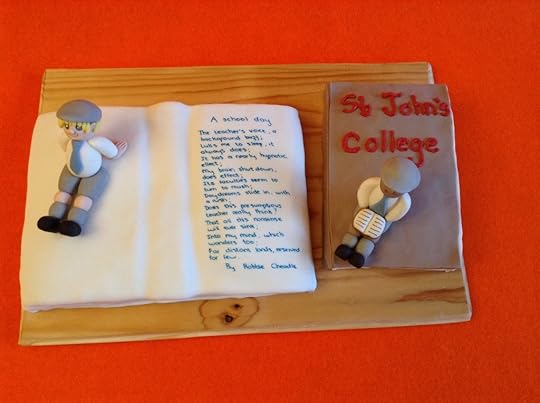 A school day
The teacher's voice, a
background buzz;
Lulls me to sleep, it
always does;
It has a nearly hypnotic
effect;
My brain shut down,
does effect;
Its faculties seem to
turn to mush;
Daydreams slide in, with
a rush;
Does this presumptous
teacher really think?
That all this nonsense
will ever sink;
Into my mind, which
wonders too;
For distant lands, reserved
for few.
By Robbie Cheadle
St John's
College